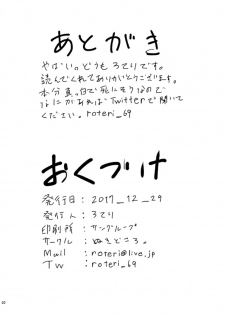 あとがき
やばい。どうもろてりです。
読んでくれてありがとうございます。
本分真っ白で死にそうなので
なにかあればTwitterで聞いて
ください。roteri_69
おくづけ
発行日：2017_12_29
発行人：ろてり
印刷所：サングループ
サークル：ぬきどころ。
Mail：roteri@live.jp
Tw：roteri_69
20